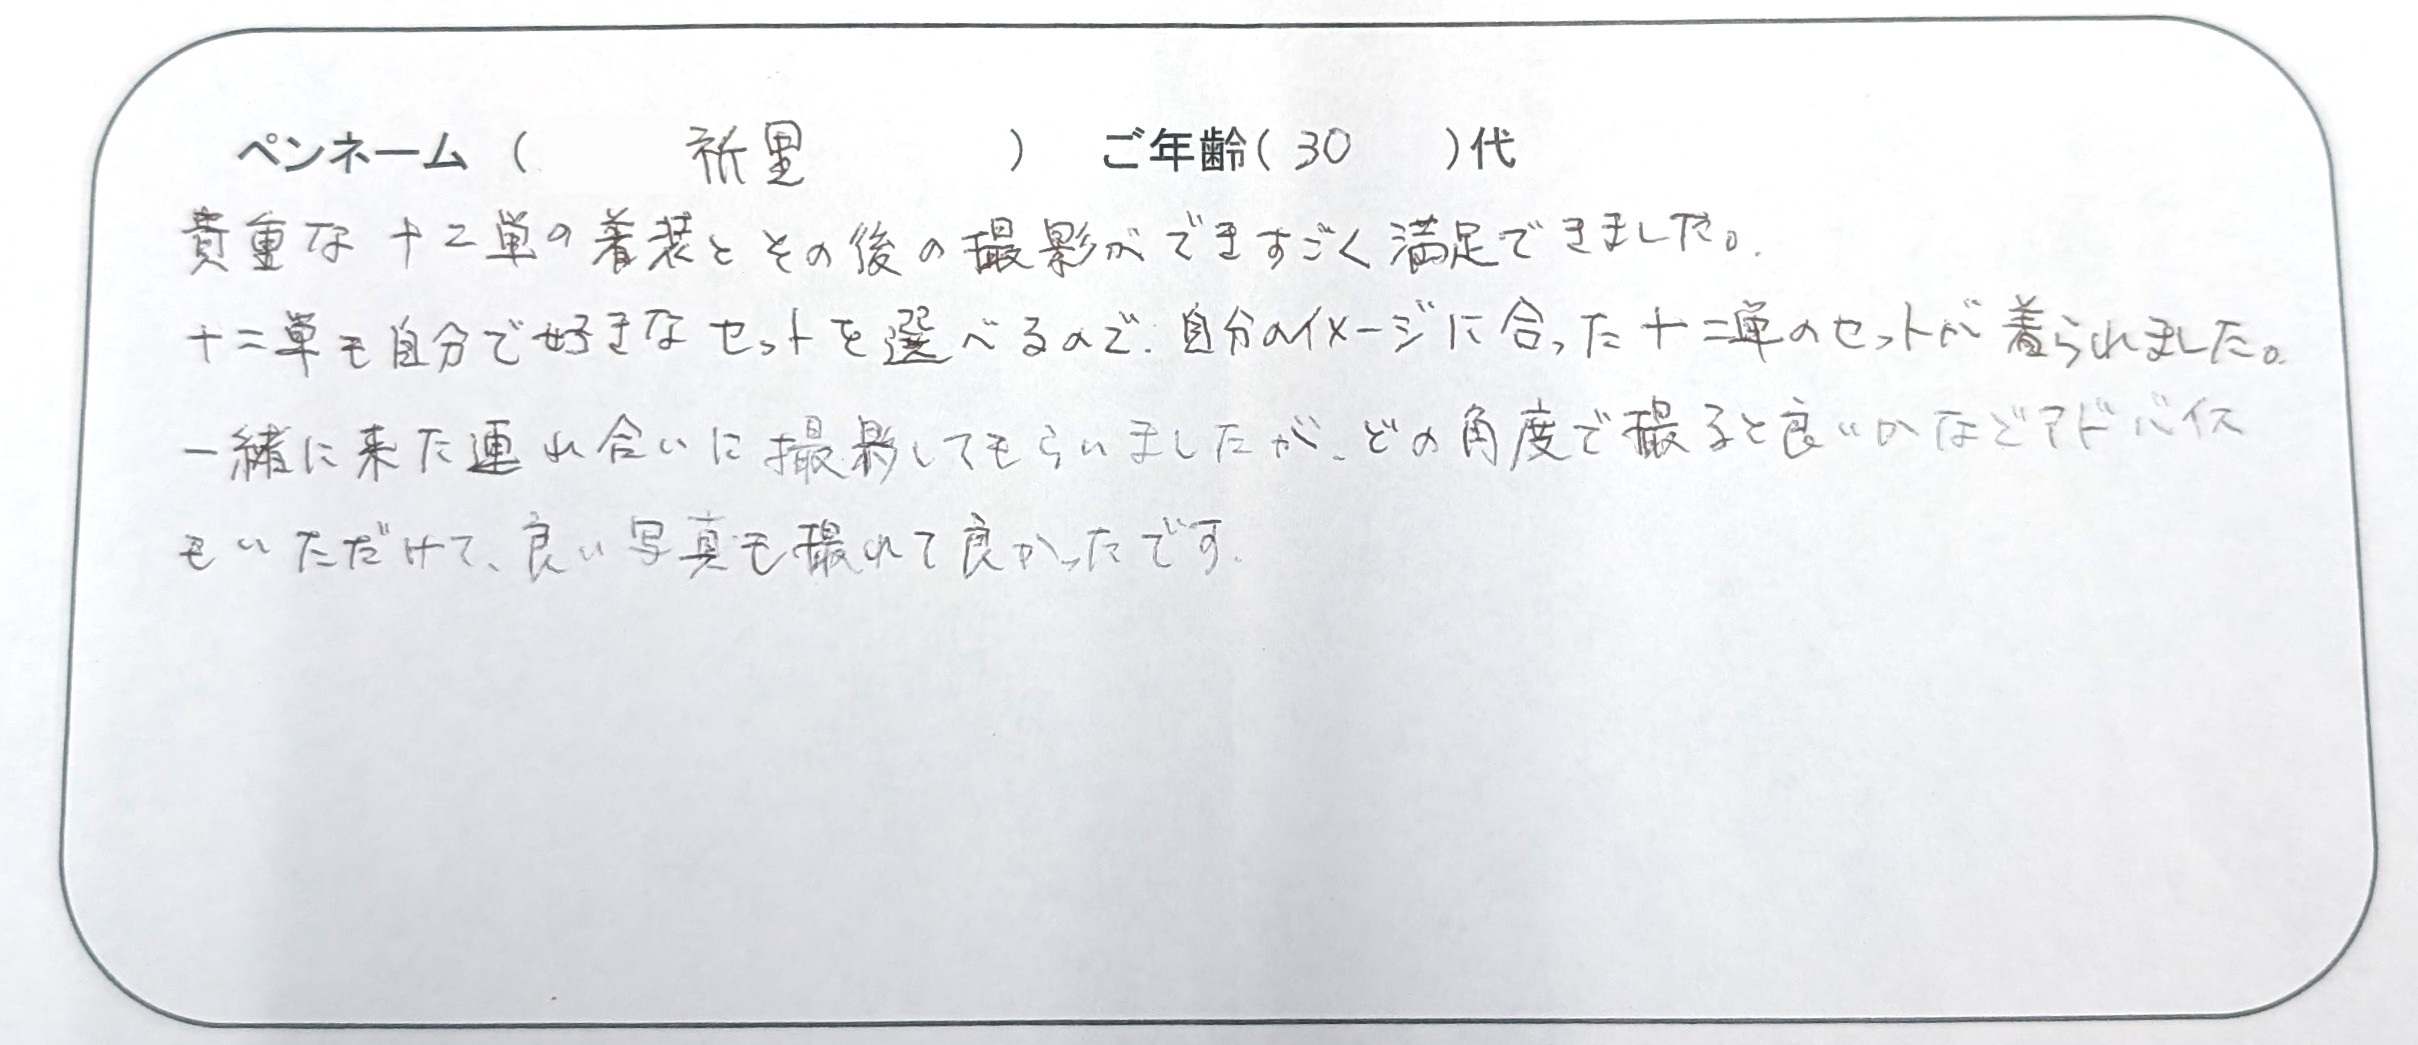 ペンネーム（ 祈里 ） ご年齢（ 30 ）代
貴重な十二単の着装とその後の撮影ができすごく満足できました。
十二単も自分で好きなセットを選べるので、自分のイメージに合った十二単のセットが着られました。
一緒に来た連れ合いに撮影してもらいましたが、どの角度で撮ると良いかなどアドバイス
もいただけて、良い写真も撮れて良かったです。